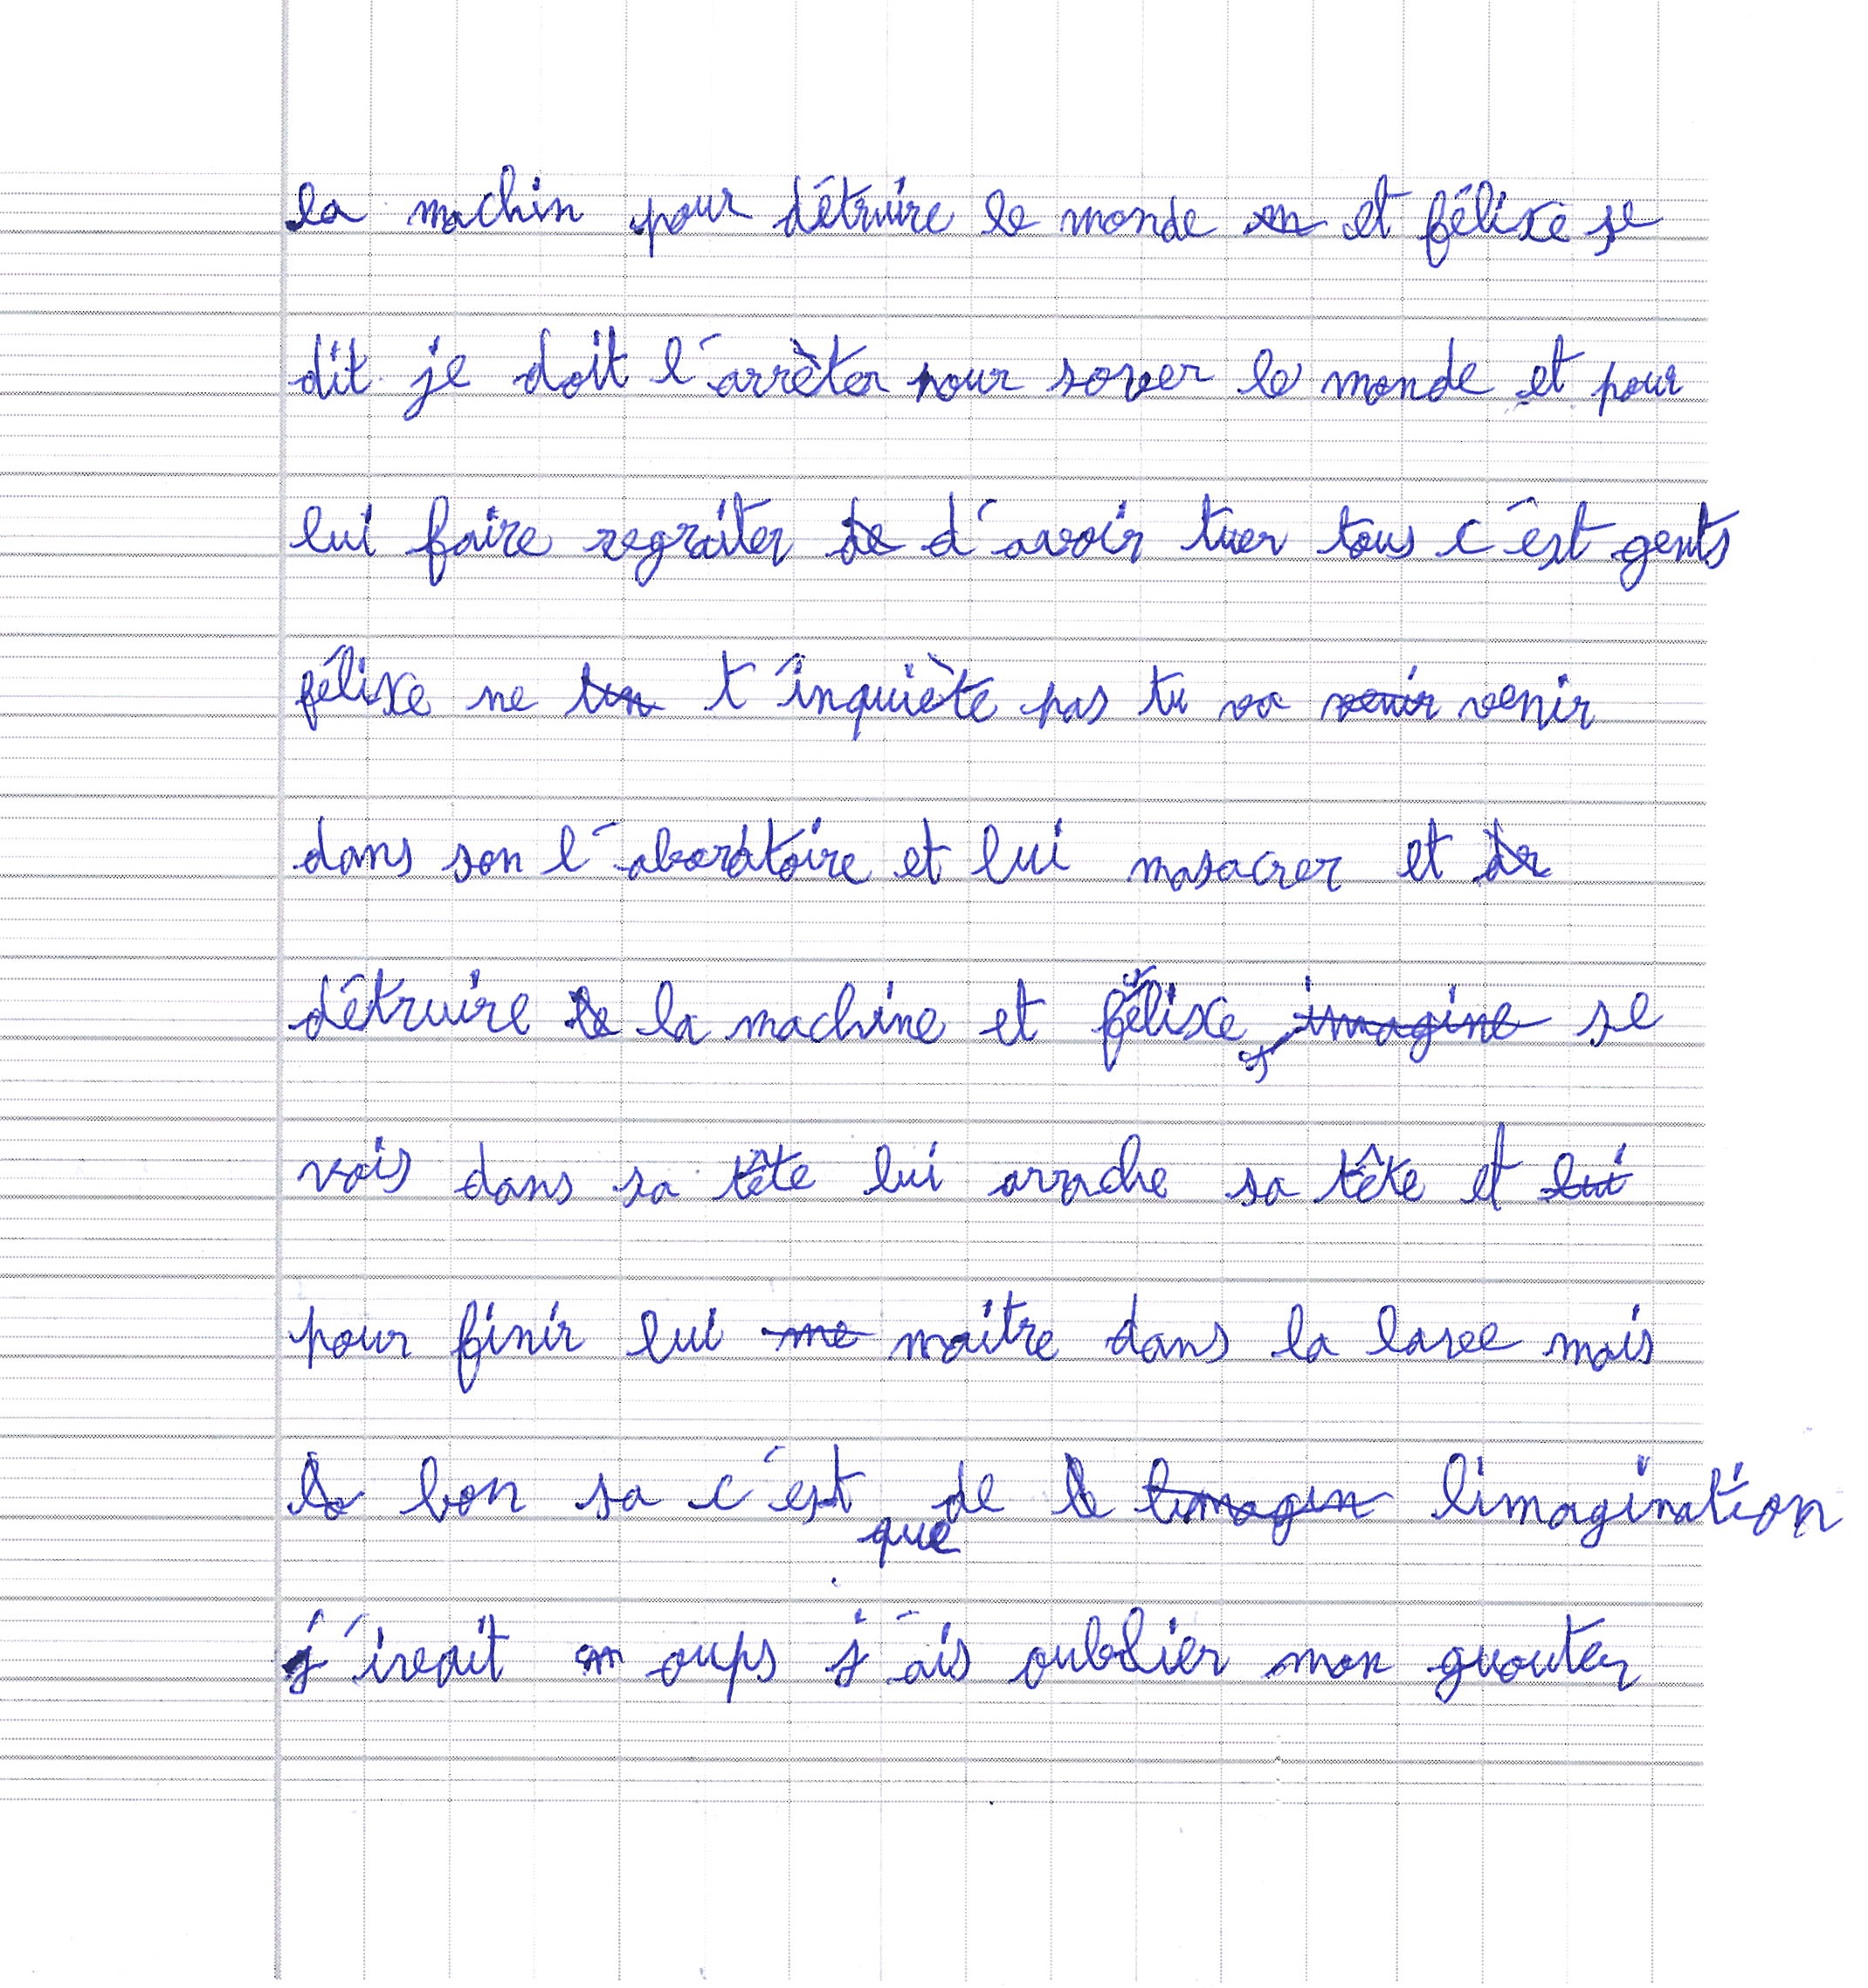 la machin pour détruire le monde et félixe se
dit je doit l'arrèter pour sover le monde et pour
lui faire regraiter d'avoir tuer tous c'est gents
félixe ne t'inquiète pas tu va venir
dans son l'aboratoire et lui masacrer et
détruire la machine et félixe se
vois dans sa tête lui arrache sa tête et
pour finir lui maitre dans la lavee mais
bon sa c'est que de limagination
j'ireait oups j'ais oublier mon guouter